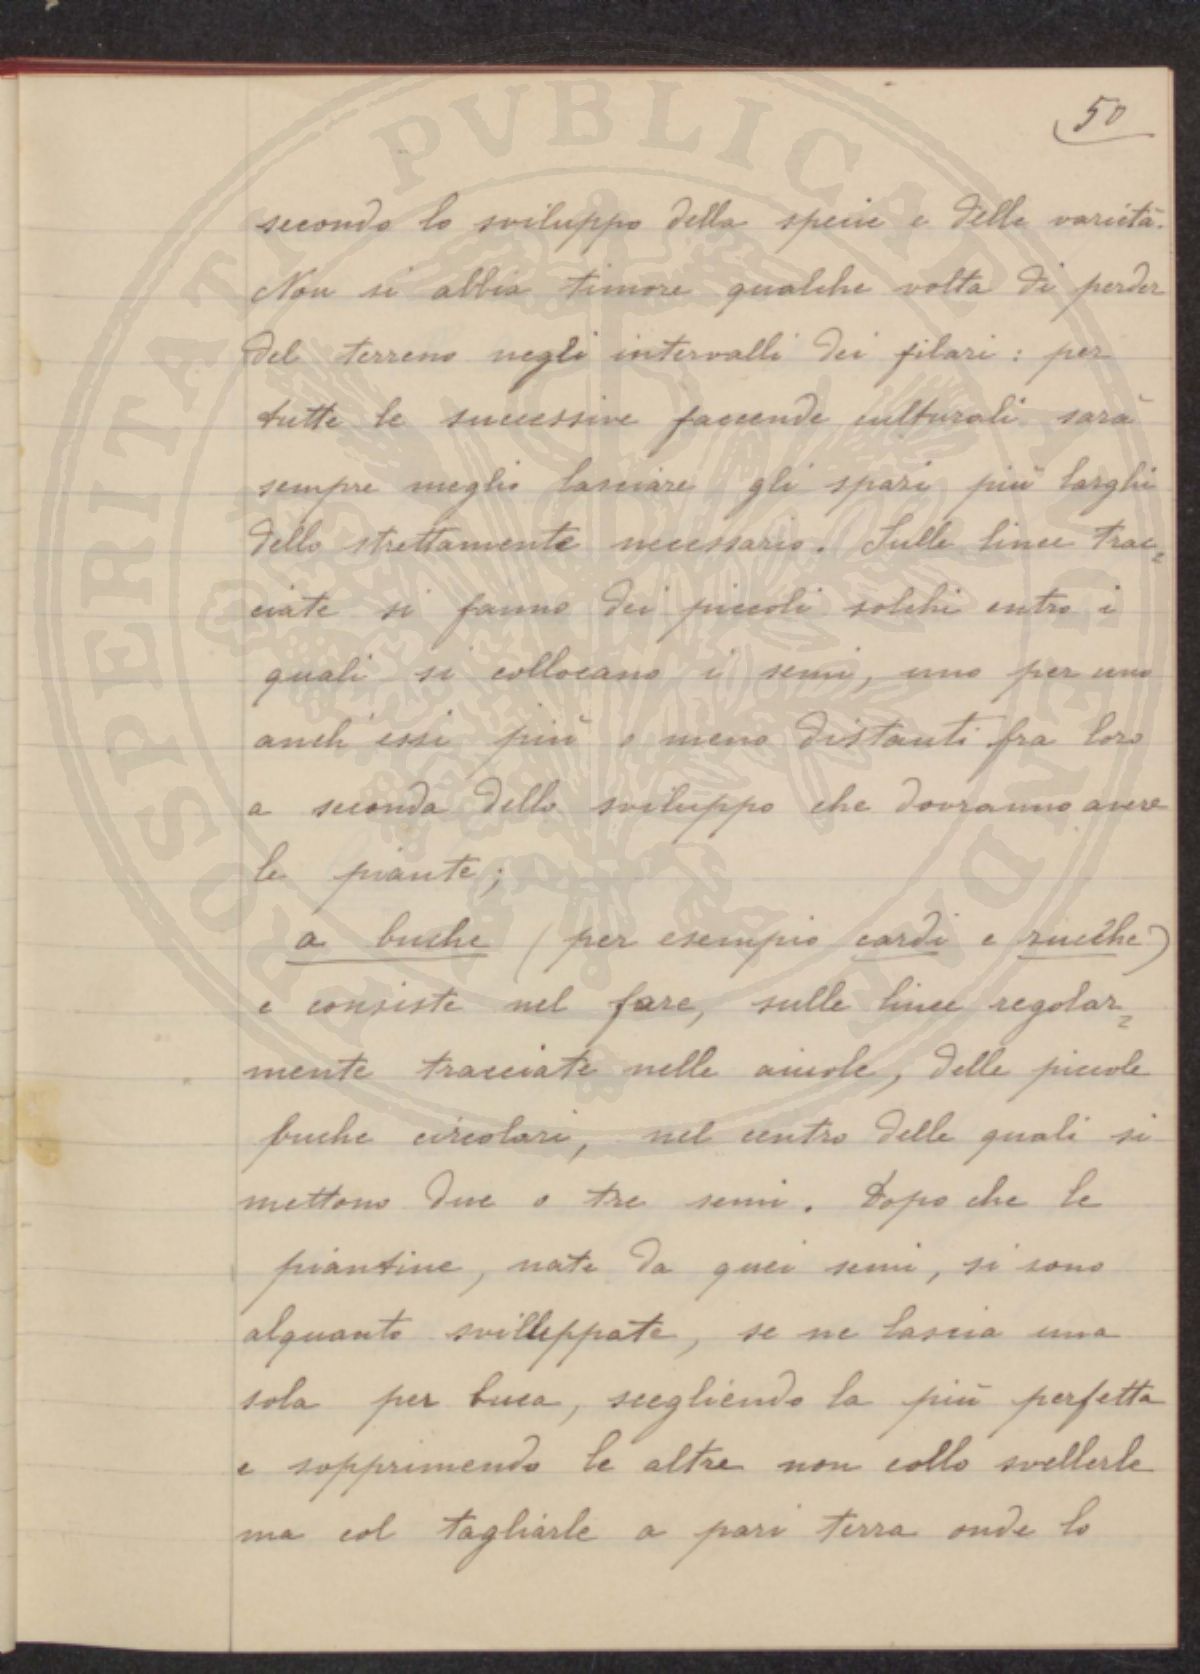 50
secondo lo sviluppo della specie e delle varietà.
Non si abbia timore qualche volta di perder
del terreno negli intervalli dei filari: per
tutte le successive faccende culturali sarà
sempre meglio lasciare gli spazi più larghi
dello strettamente necessario. Sulle linee trac=
ciate si fanno dei piccoli solchi entro i
quali si collocano i semi, uno per uno
anch'essi più o meno distanti fra loro
a seconda dello sviluppo che dovranno avere
le piante;
a buche (per esempio cardi e zucche)
e consiste nel fare, sulle linee regolar=
mente tracciate nelle aiuole, delle piccole
buche circolari, nel centro delle quali si
mettono due o tre semi. Dopo che le
piantine, nate da quei semi, si sono
alquanto sviluppate, se ne lascia una
sola per buca, scegliendo la più perfetta
e sopprimendo le altre non collo svellerle
ma col tagliarle a pari terra onde lo
PROSPERITATI PVBLICAE AVGENDAE